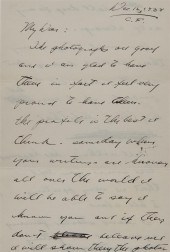 Dec 12, 1934
C.F.
My Dear:
The photographs are good
and i am glad to have
them in fact i feel very
proud to have them.
The profile is the best i
think. someday when
your writings are known
all over the world i
will be able to say i
know you and if they
don't believe me
i will show them the photos